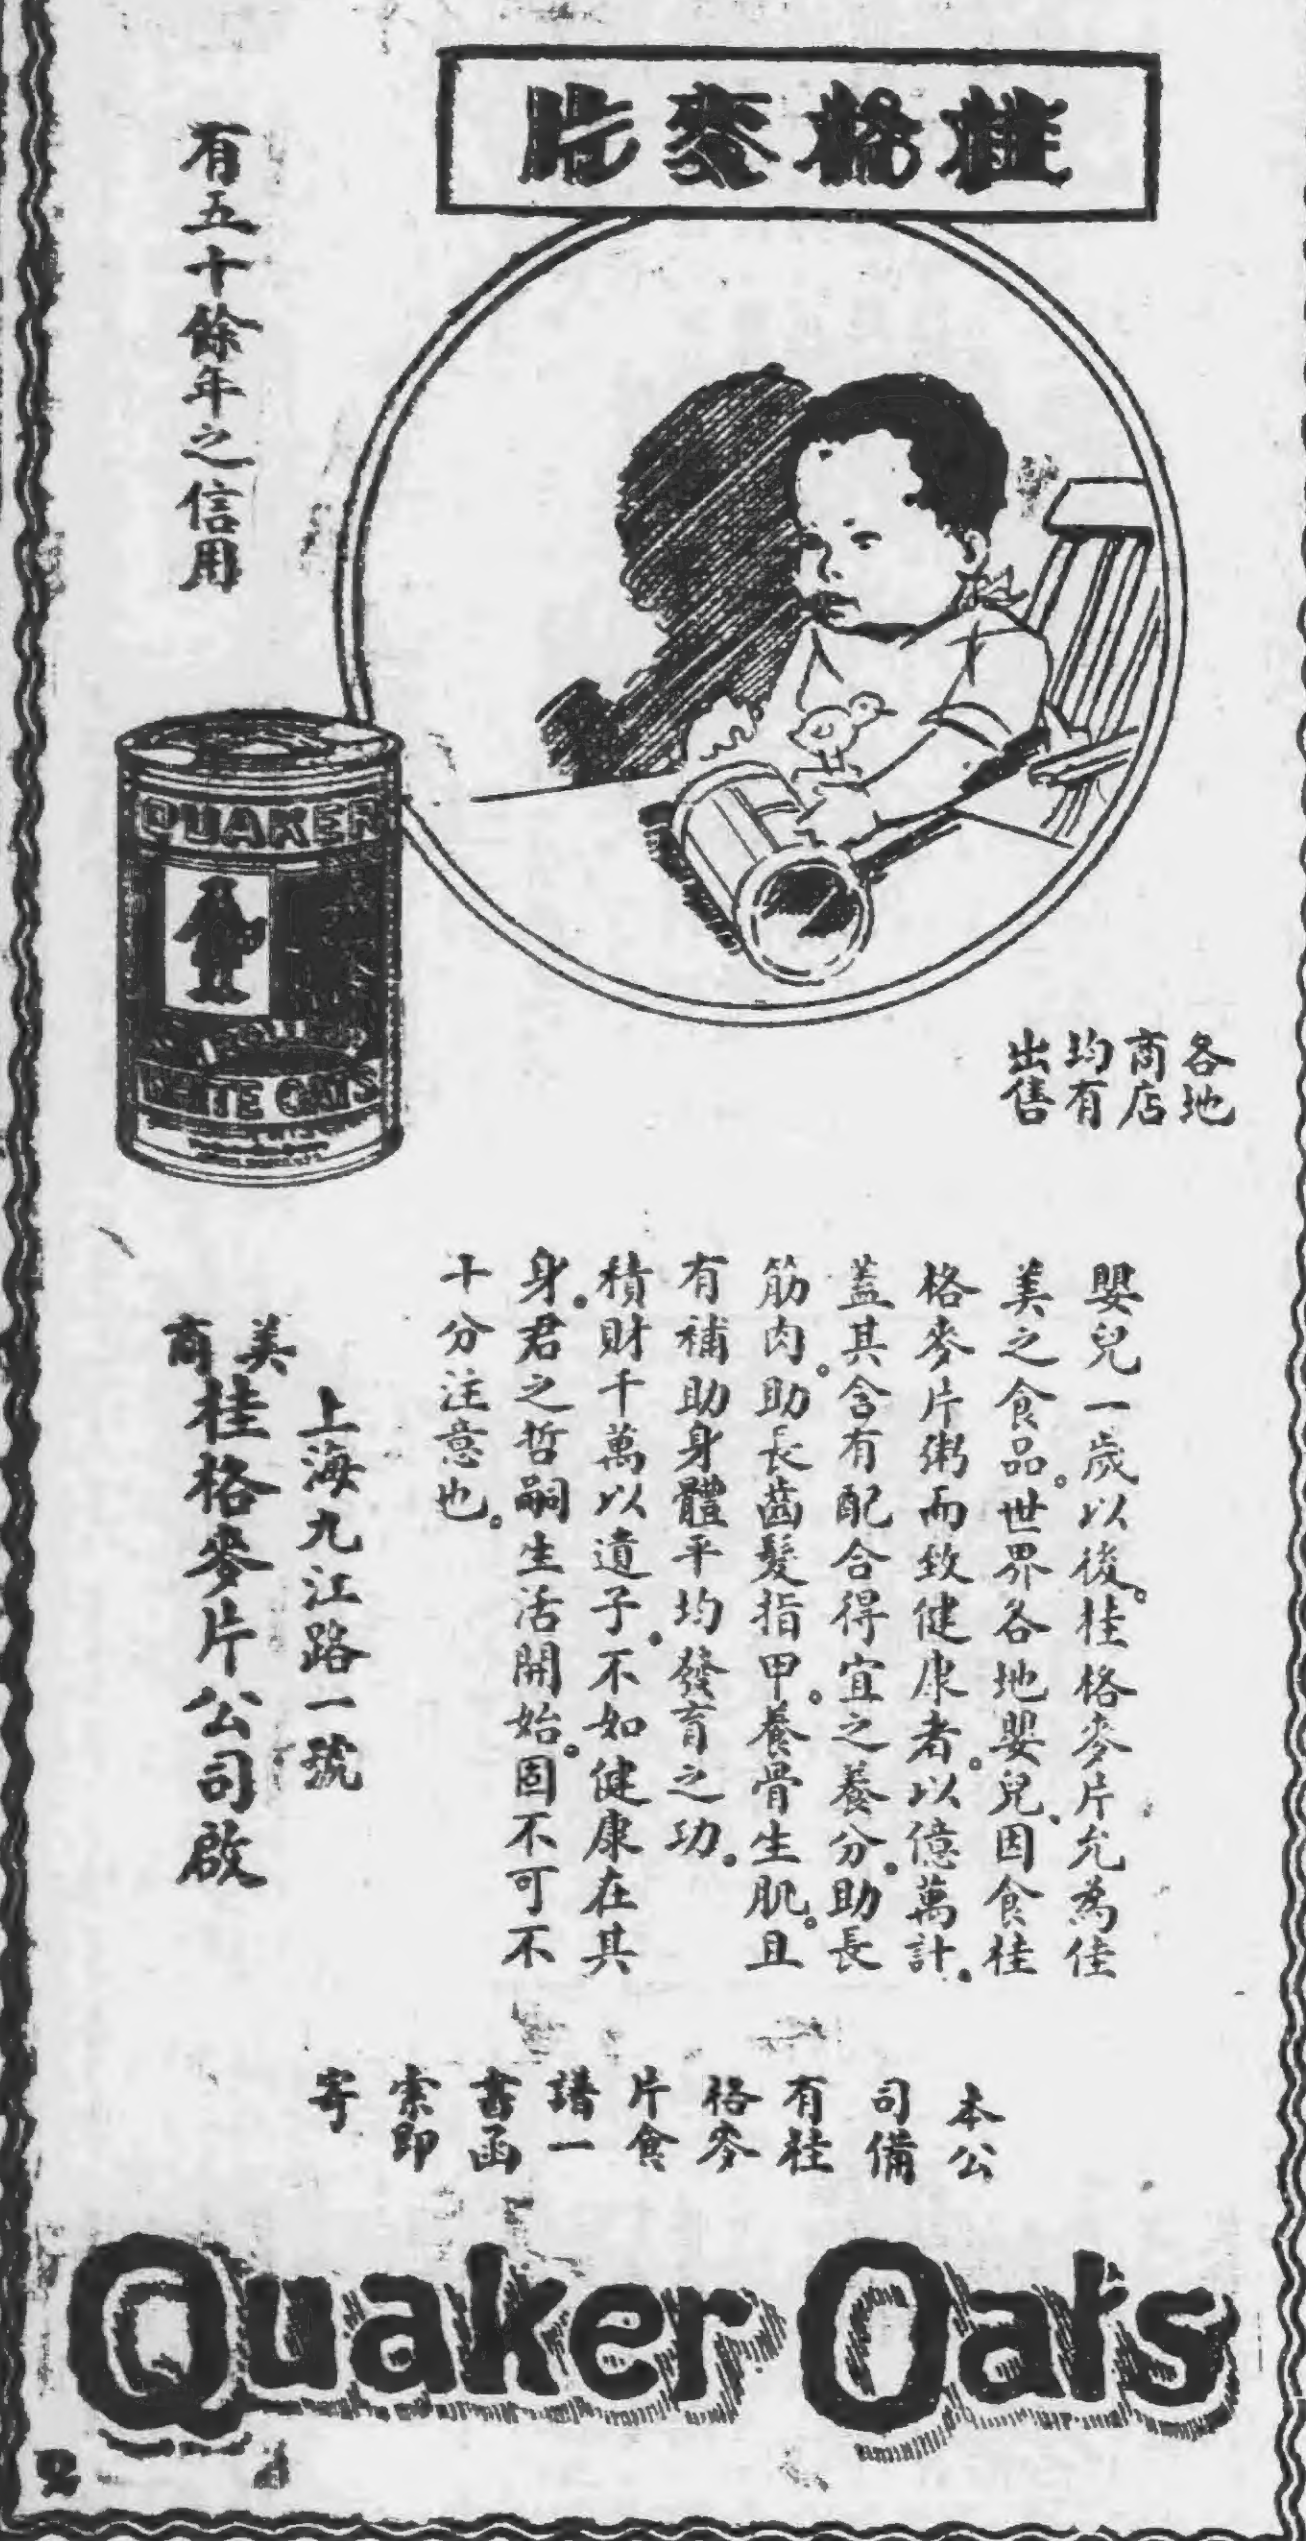 桂格麥片
有五十餘年之信用
QUAKER
WHITE OATS
各地
商店
均有
出售
嬰兒一歲以後。桂格麥片允為佳
美之食品。世界各地嬰兒、因食桂
格麥片粥而致健康者。以億萬計。
蓋其含有配合得宜之養分。助長
筋肉。助長齒髮指甲。養骨生肌。且
有補助身體平均發育之功。
積財千萬以遺子、不如健康在其
身。君之哲嗣生活開始。固不可不
十分注意也。
上海九江路一號
美商桂格麥片公司啟
本公
司備
有桂
格麥
片食
譜一
書函
索即
寄
Quaker Oats